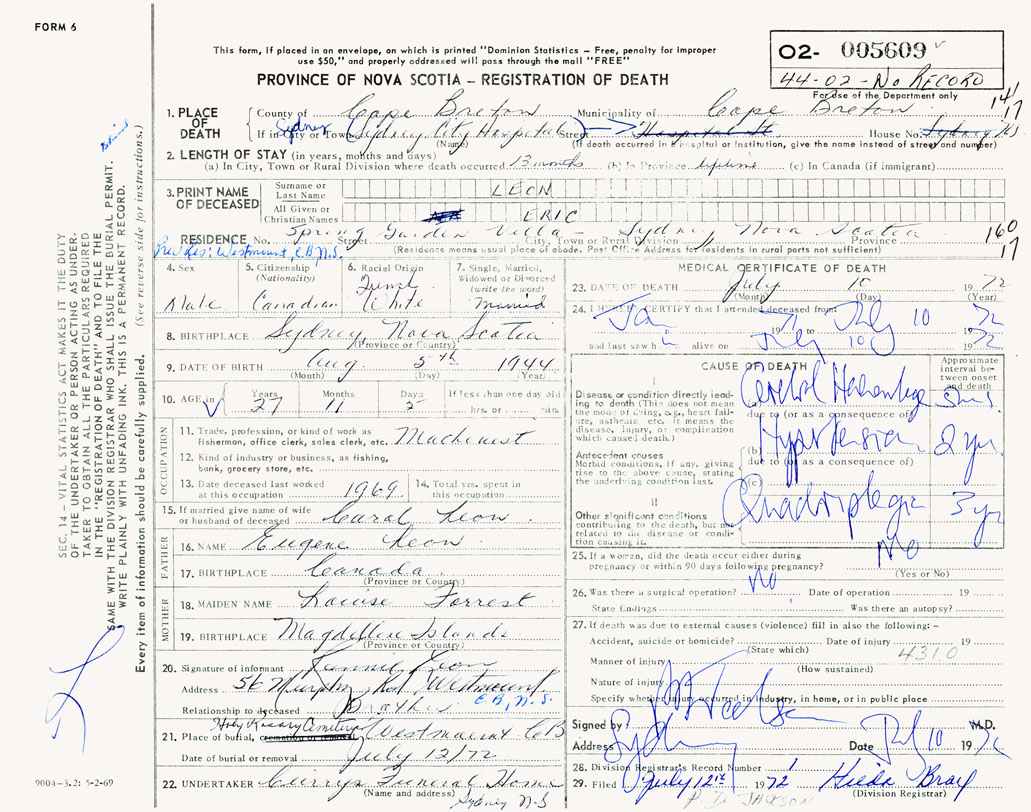 FORM 6
This form, if placed in an envelope, on which is printed "Dominion Statistics – Free, penalty for improper
use $50," and properly addressed will pass through the mail "FREE"
PROVINCE OF NOVA SCOTIA – REGISTRATION OF DEATH
02- 005609
44-02-No RECORD
For use of the Department only
141
17
1. PLACE OF DEATH
County of Cape Breton Municipality of Cape Breton
If in City or Town Sydney Sydney City Hospital Street Hospital St House No. Sydney NS
(Name) (If death occurred in a hospital or Institution, give the name instead of street and number)
2. LENGTH OF STAY (in years, months and days)
(a) In City, Town or Rural Division where death occurred 13 months (b) In Province lifetime (c) In Canada (if immigrant)
3. PRINT NAME OF DECEASED
Surname or Last Name LEON
All Given or Christian Names ERIC
RESIDENCE No. Spring Garden Villa - Sydney Nova Scotia
Street City, Town or Rural Division Province
160
17
Prev Res: Westmount, C.B. N.S.
(Residence means usual place of abode. Post Office Address for residents in rural parts not sufficient)
4. Sex Male
5. Citizenship (Nationality) Canadian
6. Racial Origin White
7. Single, Married, Widowed or Divorced (write the word) Married
8. BIRTHPLACE Sydney Nova Scotia
(Province or Country)
9. DATE OF BIRTH Aug. 5th 1944
(Month) (Day) (Year)
10. AGE in Years 27 Months 11 Days 5 If less than one day old hrs. or min.
OCCUPATION
11. Trade, profession, or kind of work as
fisherman, office clerk, sales clerk, etc. Machinist
12. Kind of industry or business, as fishing,
bank, grocery store, etc.
13. Date deceased last worked
at this occupation 1969
14. Total yrs. spent in
this occupation
15. If married give name of wife
or husband of deceased Carol Leon
FATHER
16. NAME Eugene Leon
17. BIRTHPLACE Canada
(Province or Country)
MOTHER
18. MAIDEN NAME Louise Forrest
19. BIRTHPLACE Magdellen Islands
(Province or Country)
20. Signature of informant Leon
Address 56 Murphy Rd Westmount
C.B, N.S.
Relationship to deceased Brother
Holy Rosary Cemetery
21. Place of burial, cremation or removal Westmount CB
Date of burial or removal July 12/72
22. UNDERTAKER Currys Funeral Home
(Name and address) Sydney N.S
MEDICAL CERTIFICATE OF DEATH
23. DATE OF DEATH July 10 1972
(Month) (Day) (Year)
24. I HEREBY CERTIFY that I attended deceased from:
Jan 19 71 to July 10 72
and last saw h alive on July 10 1972
CAUSE OF DEATH
Approximate interval between onset and death
I
Disease or condition directly leading to death (This does not mean the mode of dying, e.g., heart failure, asthenia, etc. It means the disease, injury, or complication which caused death.)
Cerebral Hemorrhage
due to (or as a consequence of)
Antecedent causes
Morbid conditions, if any, giving rise to the above cause, stating the underlying condition last.
(b) Hypertension 2 yr
due to (or as a consequence of)
(c)
II
Other significant conditions contributing to the death, but not related to the disease or condition causing it.
Quadriplegia 3 yr
25. If a woman, did the death occur either during
pregnancy or within 90 days following pregnancy? No
(Yes or No)
26. Was there a surgical operation? No Date of operation 19
State findings Was there an autopsy?
27. If death was due to external causes (violence) fill in also the following: –
Accident, suicide or homicide? Date of injury 19
(State which) 4310
Manner of injury
(How sustained)
Nature of injury
Specify whether injury occurred in industry, in home, or in public place
Signed by M.D.
Address Sydney Date July 10 1972
28. Division Registrar's Record Number
29. Filed July 12th 1972 Hilda Bray
(Division Registrar)
JACKSON
SEC. 14 – VITAL STATISTICS ACT MAKES IT THE DUTY
OF THE UNDERTAKER OR PERSON ACTING AS UNDER-
TAKER TO OBTAIN ALL THE PARTICULARS REQUIRED
IN THE "REGISTRATION OF DEATH" AND TO FILE THE
SAME WITH THE DIVISION REGISTRAR WHO SHALL ISSUE THE BURIAL PERMIT.
WRITE PLAINLY WITH UNFADING INK. THIS IS A PERMANENT RECORD.
Every item of information should be carefully supplied. (See reverse side for instructions.)
9004-3.2: 5-2-69